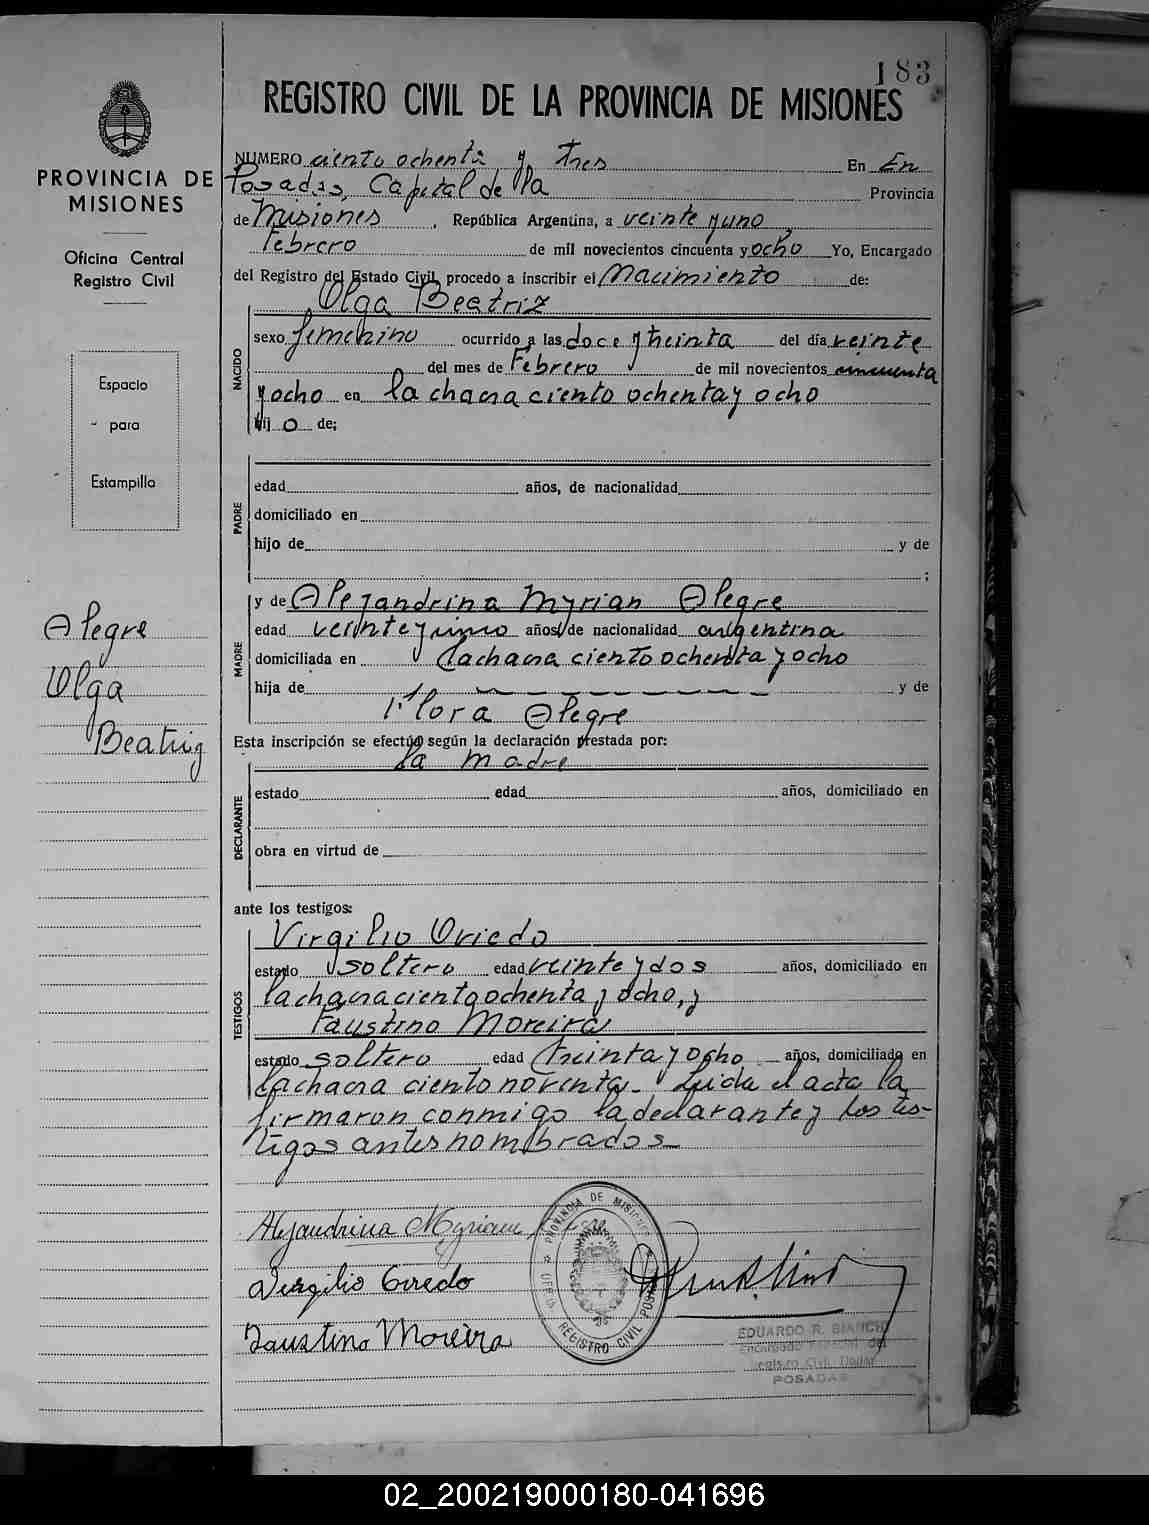 183
REGISTRO CIVIL DE LA PROVINCIA DE MISIONES
PROVINCIA DE
MISIONES
Oficina Central
Registro Civil
Espacio
para
Estampilla
Alegre
Olga
Beatriz
NUMERO ciento ochenta y tres En En
Posadas, Capital de la Provincia
de Misiones, República Argentina, a veinte y uno
Febrero de mil novecientos cincuenta y ocho Yo, Encargado
del Registro del Estado Civil, procedo a inscribir el Nacimiento de:
Olga Beatriz
NACIDO
sexo femenino ocurrido a las doce y treinta del día veinte
del mes de Febrero de mil novecientos cincuenta
y ocho en la chacra ciento ochenta y ocho
hij o de;
PADRE
edad años, de nacionalidad
domiciliado en
hijo de y de
;
MADRE
y de Alejandrina Myrian Alegre
edad veinte y uno años, de nacionalidad argentina
domiciliada en la chacra ciento ochenta y ocho
hija de y de
Flora Alegre
Esta inscripción se efectúa según la declaración prestada por:
la madre
DECLARANTE
estado edad años, domiciliado en
obra en virtud de
ante los testigos:
TESTIGOS
Virgilio Oviedo
estado soltero edad veinte y dos años, domiciliado en
la chacra ciento ochenta y ocho, y
Faustino Moreira
estado soltero edad treinta y ocho años, domiciliado en
la chacra ciento noventa. Leida el acta la
firmaron conmigo la declarante y los tes-
tigos antes nombrados
Alejandrina Myriam
Virgilio Oviedo
Faustino Moreira
PROVINCIA DE MISIONES
REGISTRO CIVIL POSADAS
EDUARDO R. BIANCHI
Encargado del
Registro Civil
POSADAS
02_200219000180-041696